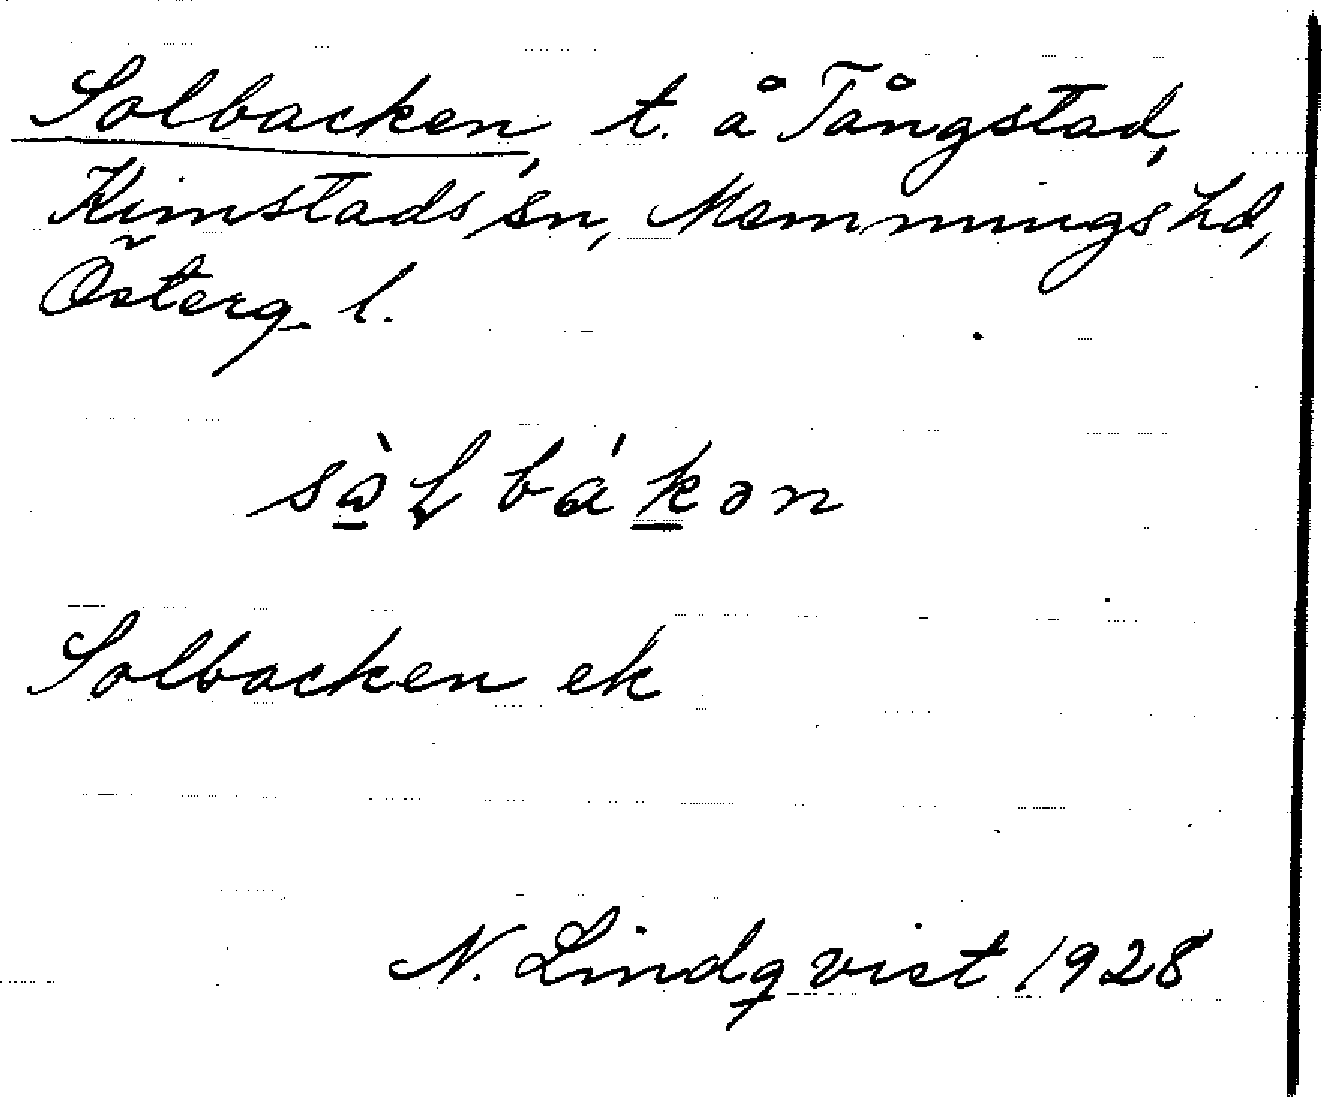 Solbacken, t. å Tångstad,
Kimstads sn, Memmings hd,
Österg. l.
sòLbákən
Solbacken ek
N. Lindqvist 1928